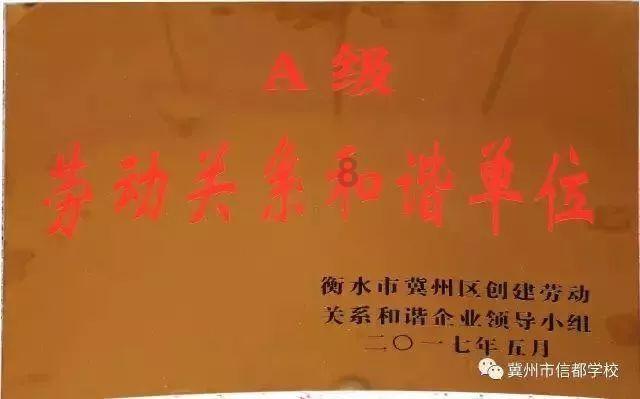 A级
劳动关系和谐单位
8
衡水市冀州区创建劳动
关系和谐企业领导小组
二〇一七年五月
冀州市信都学校